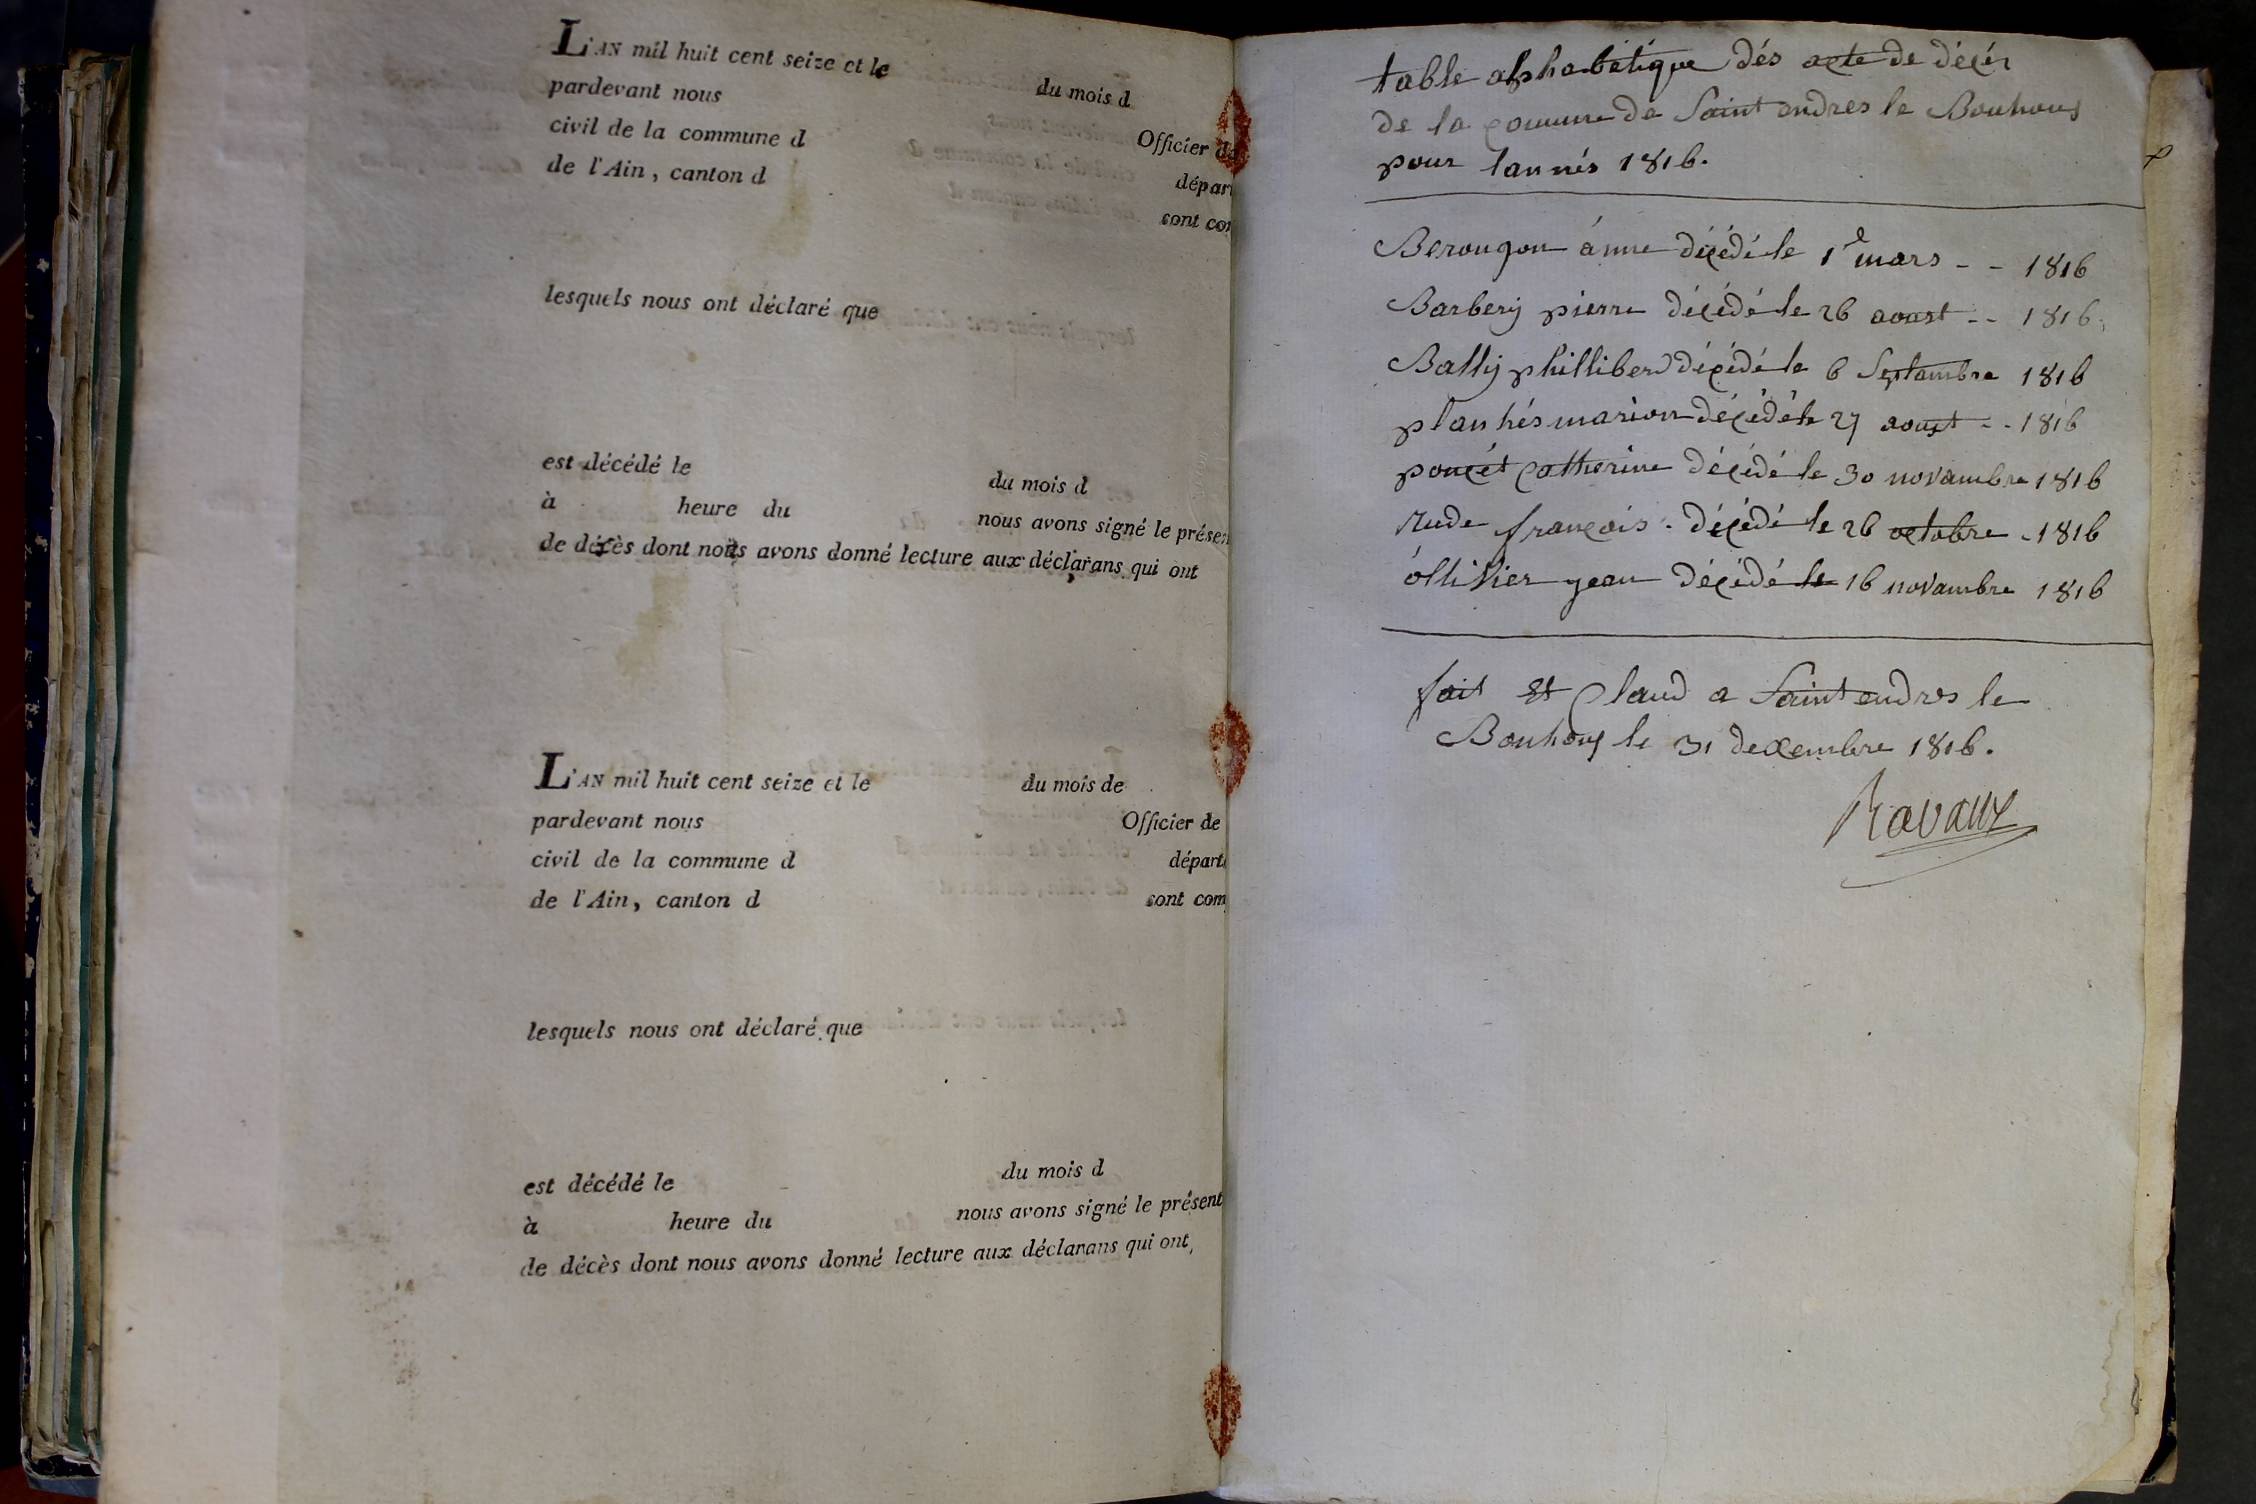 L'AN mil huit cent seize et le du mois d
pardevant nous Officier de
civil de la commune d dépar
de l'Ain, canton d sont co
lesquels nous ont déclaré que
est décédé le du mois d
à heure du nous avons signé le présen
de décès dont nous avons donné lecture aux déclarans qui ont
L'AN mil huit cent seize et le du mois de
pardevant nous Officier de
civil de la commune d départ
de l'Ain, canton d sont com
lesquels nous ont déclaré que
est décédé le du mois d
à heure du nous avons signé le présent
de décès dont nous avons donné lecture aux déclarans qui ont
table alphabetique dés acte de décés
de la commune de Saint andres le Bouhous
pour lannés 1816.
Berougon anne décédé le 1er mars - - 1816
Barbery pierre décédé le 26 aoust - - 1816
Bally philliber décédé le 6 Septambre 1816
planhés marion décédé le 27 aoust - - 1816
poncét catherine décédé le 30 novambre 1816
rude françois - décédé le 26 octobre - 1816
óllivier jean décédé le 16 novambre 1816
fait et claud a Saint andres le
Bouhous le 31 decembre 1816.
Ravaux